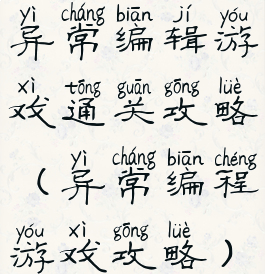 yì cháng biān jí yóu
异常编辑游
xì tōng guān gōng lüè
戏通关攻略
yì cháng biān chéng
（异常编程
yóu xì gōng lüè
游戏攻略）